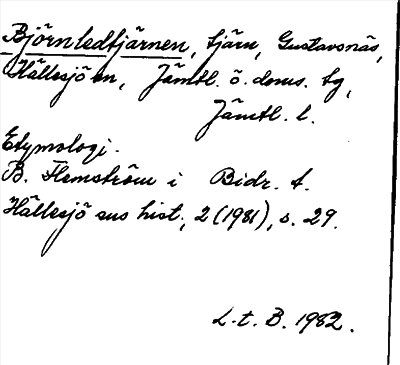 Björnledtjärnen, tjärn, Gustavsnäs,
Hällesjö sn, Jämtl. ö. doms. tg,
Jämtl. l.
Etymologi.
B. Flemström i Bidr. t.
Hällesjö sns hist., 2 (1981), s. 29.
L.t. B. 1982.